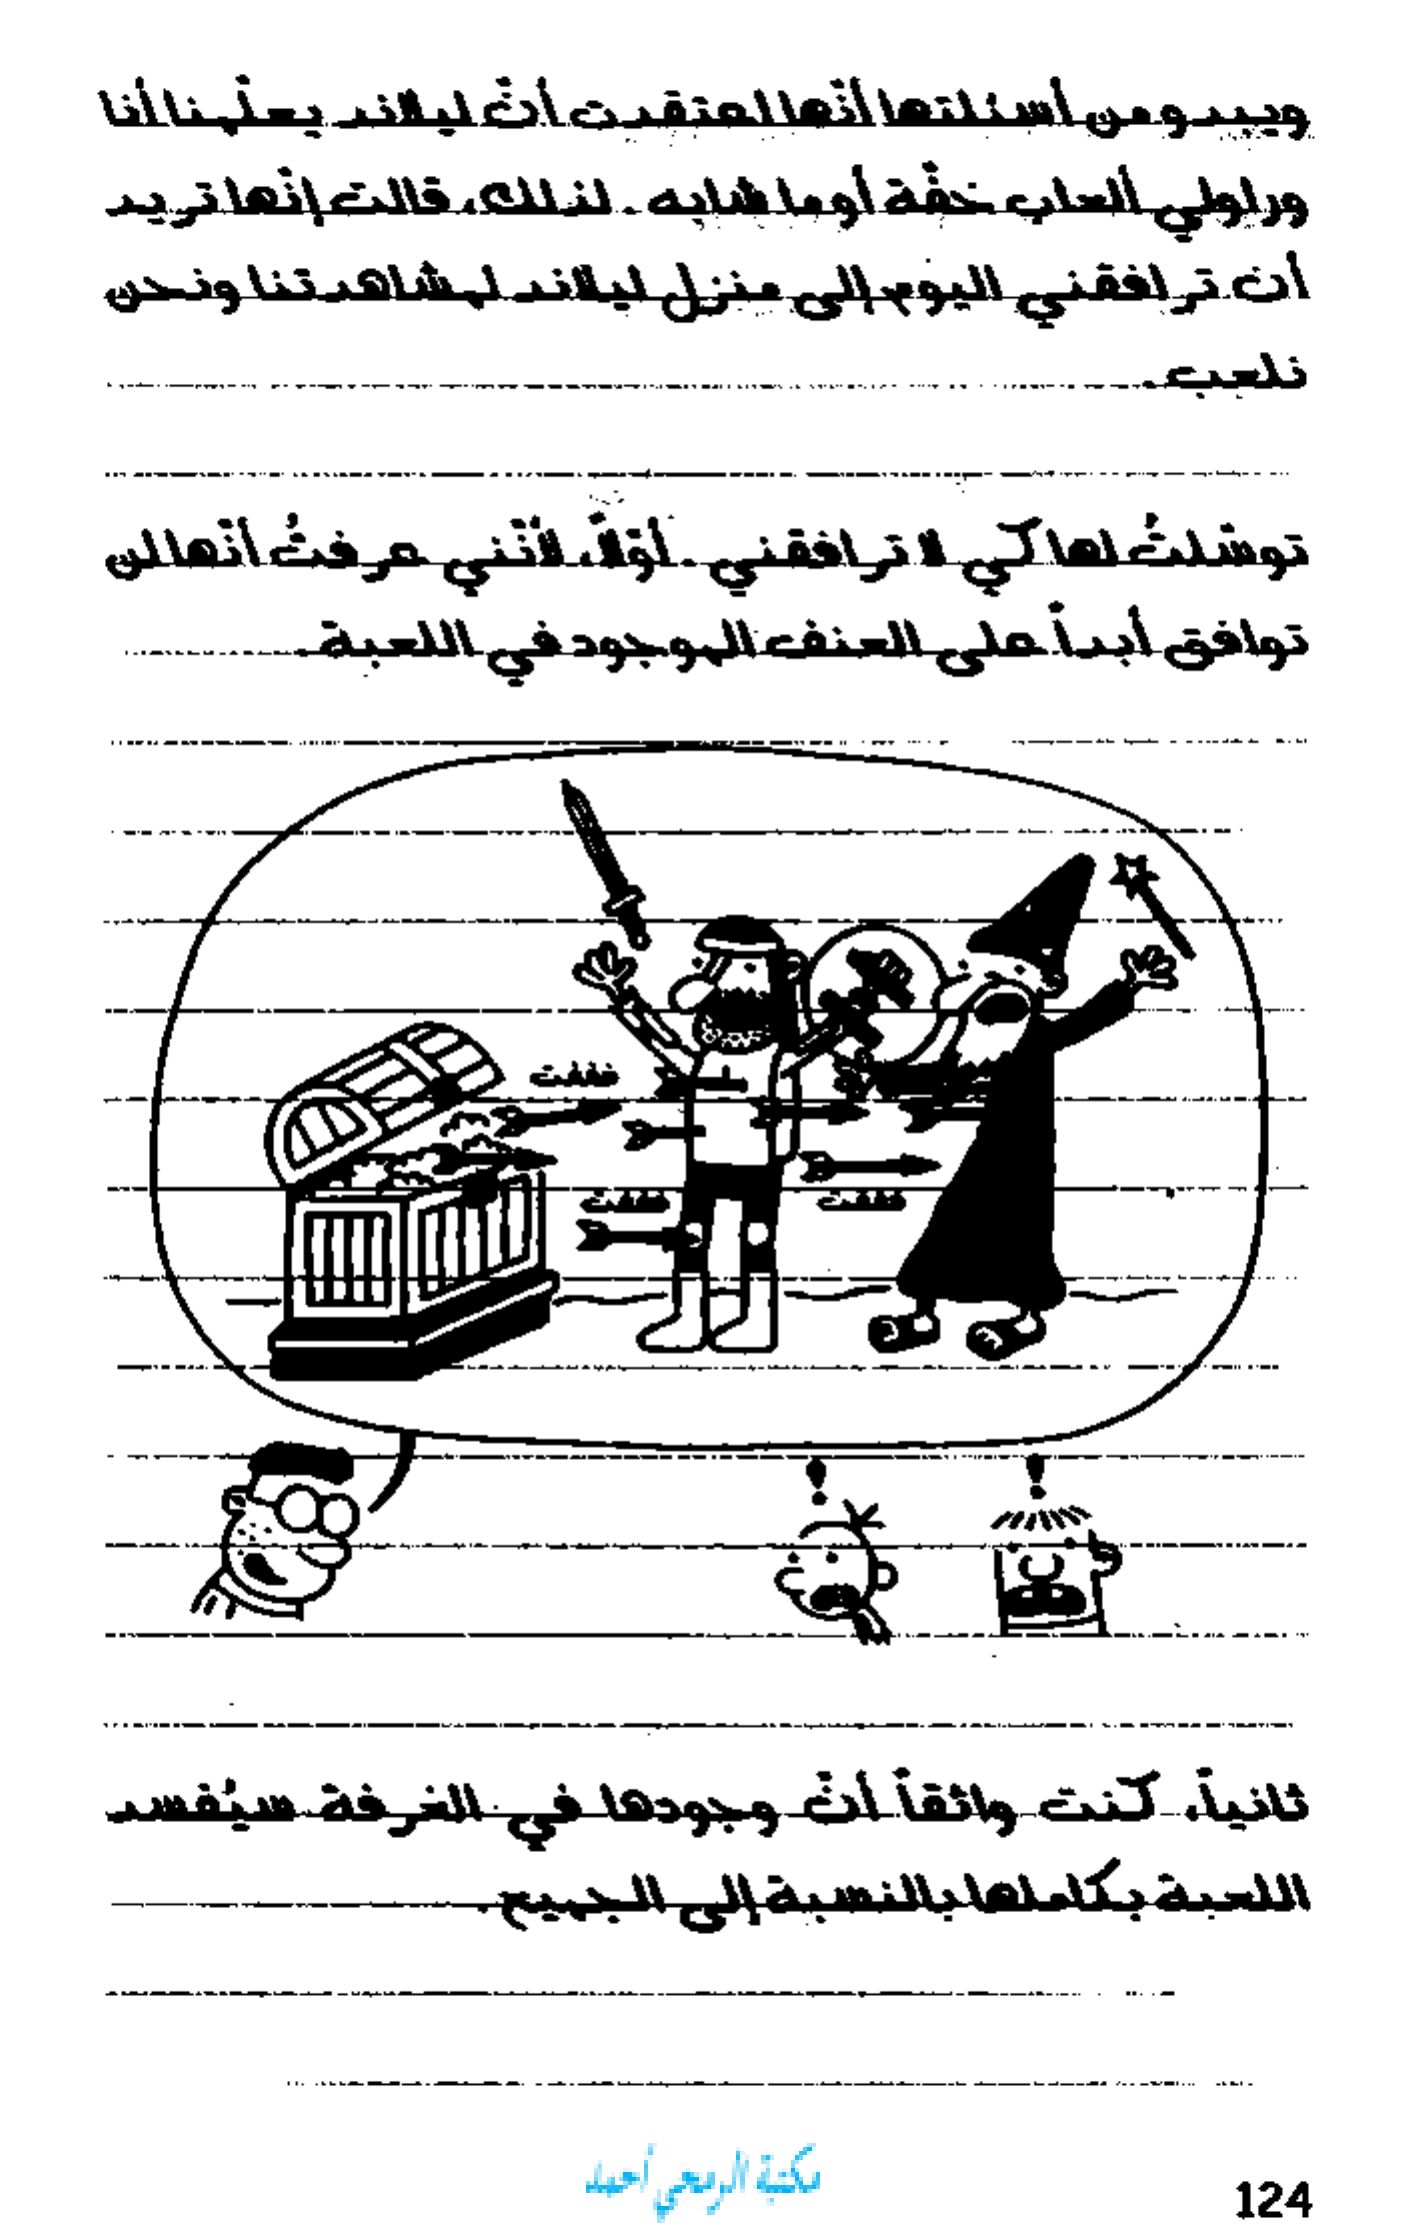 ويبدو من أسئلتها أنّها اعتقدت أنّ ليلاند يعلّمنا أنا
وراولي ألعاب خفّة أو ما شابه. لذلك، قالت إنّها تريد
أن ترافقني اليوم إلى منزل ليلاند لمشاهدتنا ونحن
نلعب.
توسّلتُ لها كي لا ترافقني. أوّلاً، لأنّني عرفتُ أنّها لن
توافق أبداً على العنف الموجود في اللعبة.
فففت
فففت
فففت
!
!
ثانياً، كنت واثقاً أنّ وجودها في الغرفة سيُفسد
اللعبة بكاملها بالنسبة إلى الجميع.
مكتبة الرمحي أحمد
124